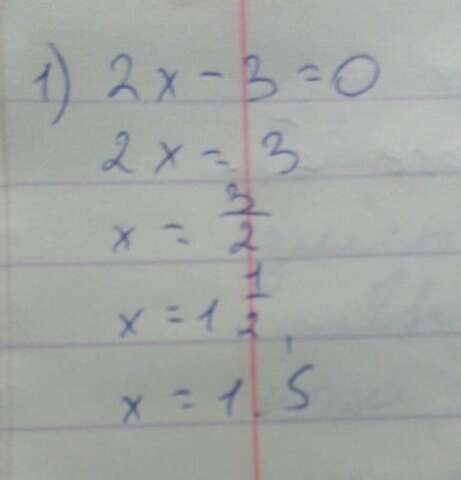 1) 2x - 3 = 0
2x = 3
x = 3/2
x = 1 1/2
x = 1.5